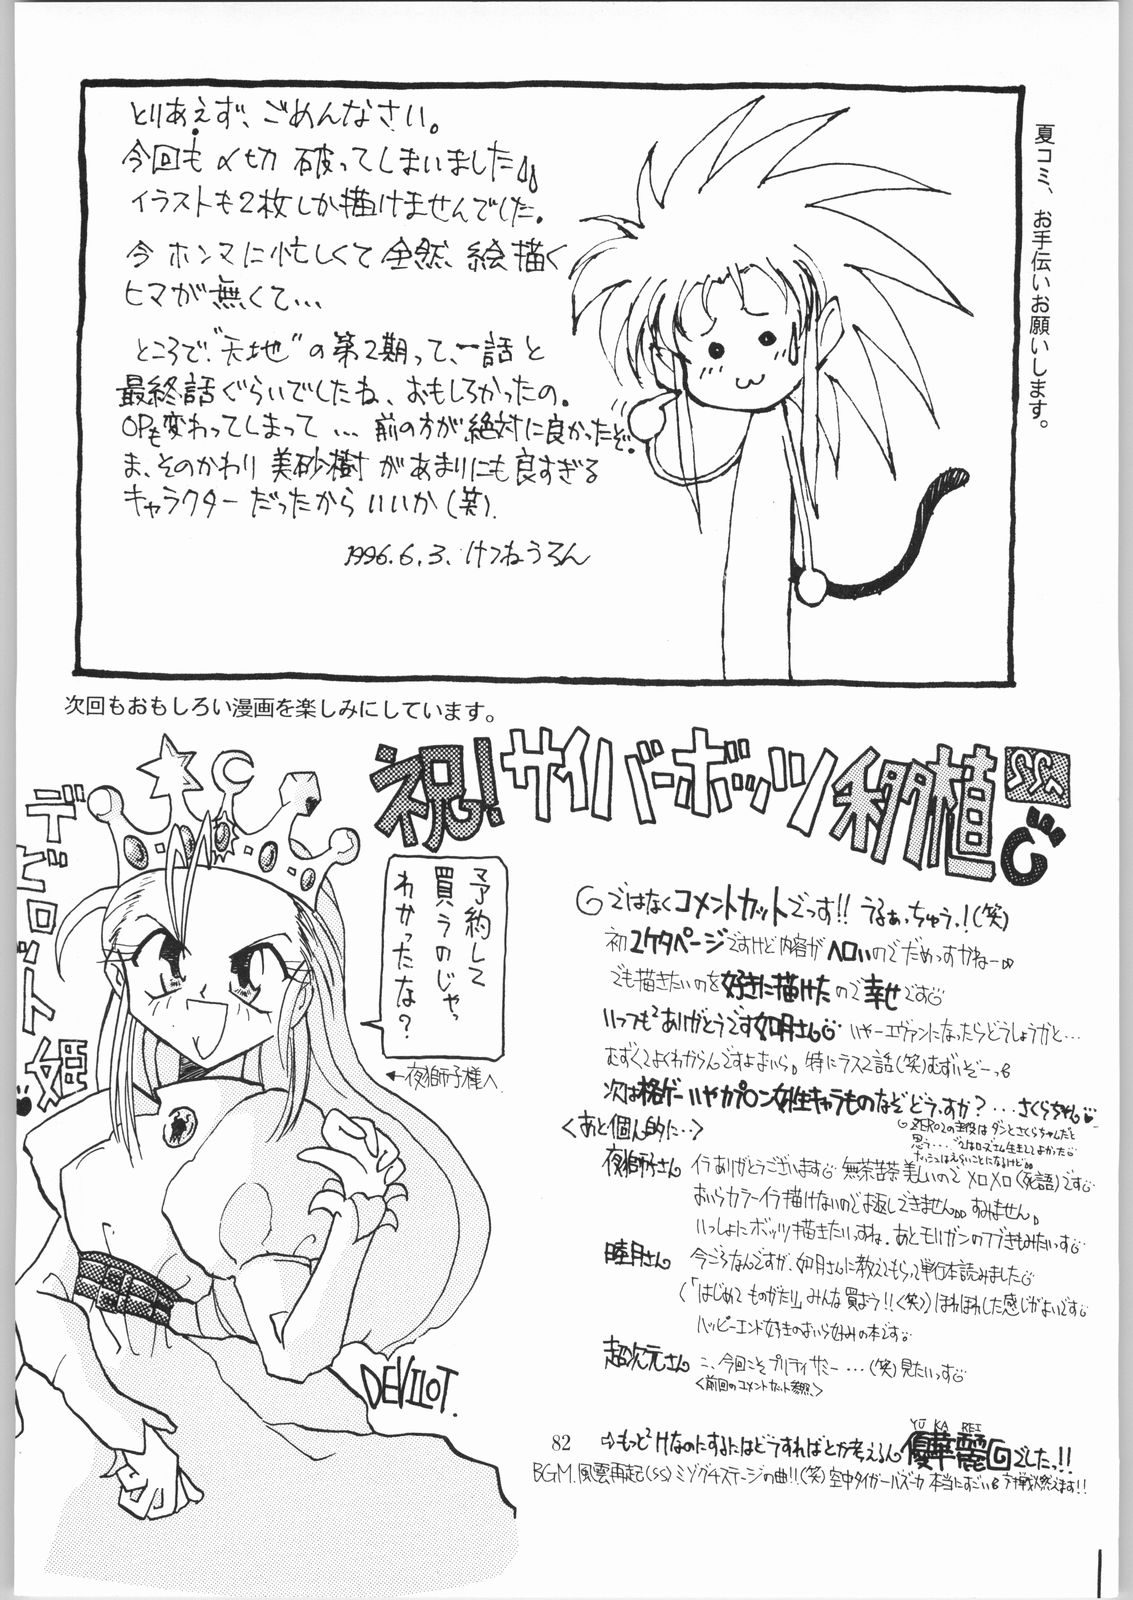 とりあえず、ごめんなさい。
今回も〆切 破ってしまいました
イラストも2枚しか描けませんでした.
今 ホンマに忙しくて 全然、絵描く
ヒマが無くて…
ところで、"天地"の第2期って、一話と
最終話ぐらいでしたね、おもしろかったの。
OPも変わってしまって … 前の方が絶対に良かったぞ.
ま、そのかわり 美砂樹があまりにも良すぎる
キャラクターだったからいいか(笑).
1996.6.3、けつねうろん
夏コミ、お手伝いお願いします。
次回もおもしろい漫画を楽しみにしています。
祝!サイバーボッツ移植
デビロット姫
予約して
買うのじゃっ
わかったな?
←夜獅子様へ
DEVILOT.
ではなくコメントカットでっす!! うるぁっちゅうっ!(笑)
初2ケタページですけど内容がヘロいのでだめっすかねー
でも描きたいのを好きに描けたので幸せです
いっつも²ありがとうです如月さん いやーエヴァンになったらどうしょうかと…
むずくてよくわからんですよおいら。特にラス2話(笑)むずいぞーっ
次は格ゲーいやカプロン女性キャラものなぞどうっすか?…さくらちゃん
ZERO2の主役はダンとさくらちゃんだと
思う....
<あと個人的に…>
夜獅子さん イラありがとうございます 無茶苦茶美しいのでメロメロ(死語)です
おいらカラーイラ描けないのでお返しできません すみません
いっしょにボッツ描きたいっすね.あとモリガンの
睦月さん 今ごろなんですが、如月さんに教えてもらって単行本読みました
(「はじめてものがたり」みんな買よう!!(笑))ほわほわした感じがよいです
ハッピーエンド好きのおいら好みの本です
超次元さん こ、今回こそプリティサミー…(笑)見たいっす
<前回のコメントカット参照>
82
⇨もっと²Hなのにするにはどうすればとか考えるん
YU KA REI
優華麗でしたっ!!
BGM.風雲再起(SS)ミヅグチステージの曲!!(笑)空中タイガーバズーカ 本当にすごい 対戦燃えます!!